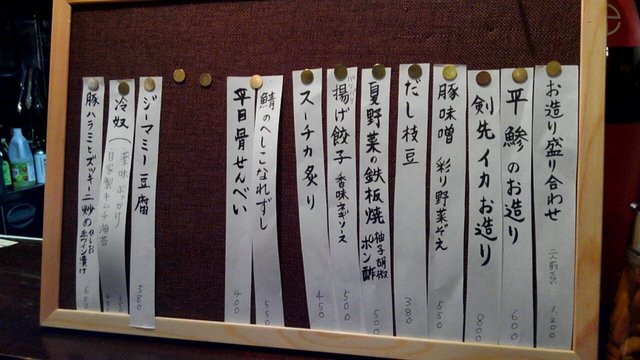 お造り盛り合わせ 二人前ぐらい 1.200
平鯵のお造り 600
剣先イカお造り 800
豚味噌 彩り野菜ぞえ 550
だし枝豆 380
夏野菜の鉄板焼 柚子胡椒ポン酢 500
揚げ餃子 香味ネギソース 500
スーチカ炙り 450
鯖のへしこなれずし 550
平目骨せんべい 400
ジーマミー豆腐 580
冷奴(薬味ぶっかけ/自家製キムチ海苔)
豚ハラミとズッキーニ 650